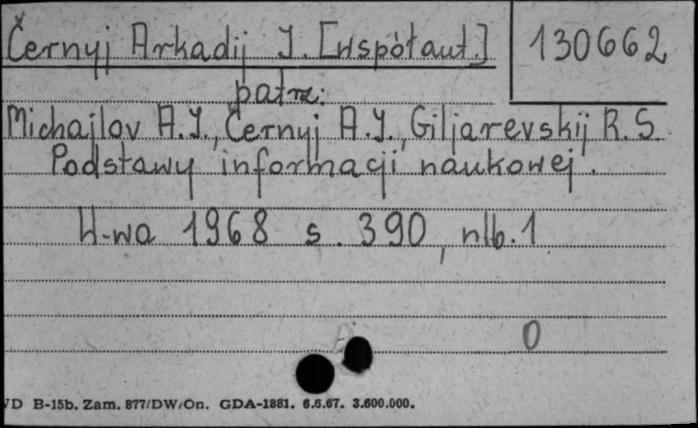 Černyj Arkadij J. [współaut.] 130662
patrz:
Michajlov A.J., Černyj A.J., Giljarevskij R.S.
Podstawy informacji naukowej.
W-wa 1968 s. 390, nlb. 1
0
D B-15b. Zam. 877/DW/On. GDA-1881. 6.6.67. 3.600.000.